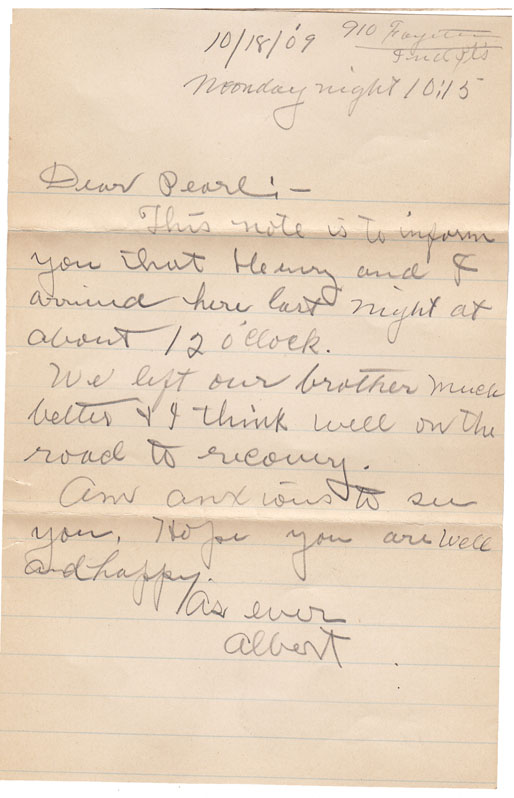 10/18/09 910 Fayette
Indpls
Moonday night 10:15
Dear Pearl:-
This note is to inform
you that Henry and I
arrived here last night at
about 12 o'clock.
We left our brother much
better & I think well on the
road to recovery.
Am anxious to see
you. Hope you are well
and happy.
As ever
Albert